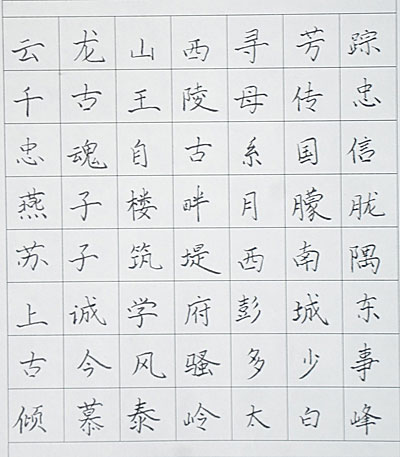 云龙山西寻芳踪
千古王陵母传忠
忠魂自古系国信
燕子楼畔月朦胧
苏子筑堤西南隅
上诚学府彭城东
古今风骚多少事
倾慕泰岭太白峰